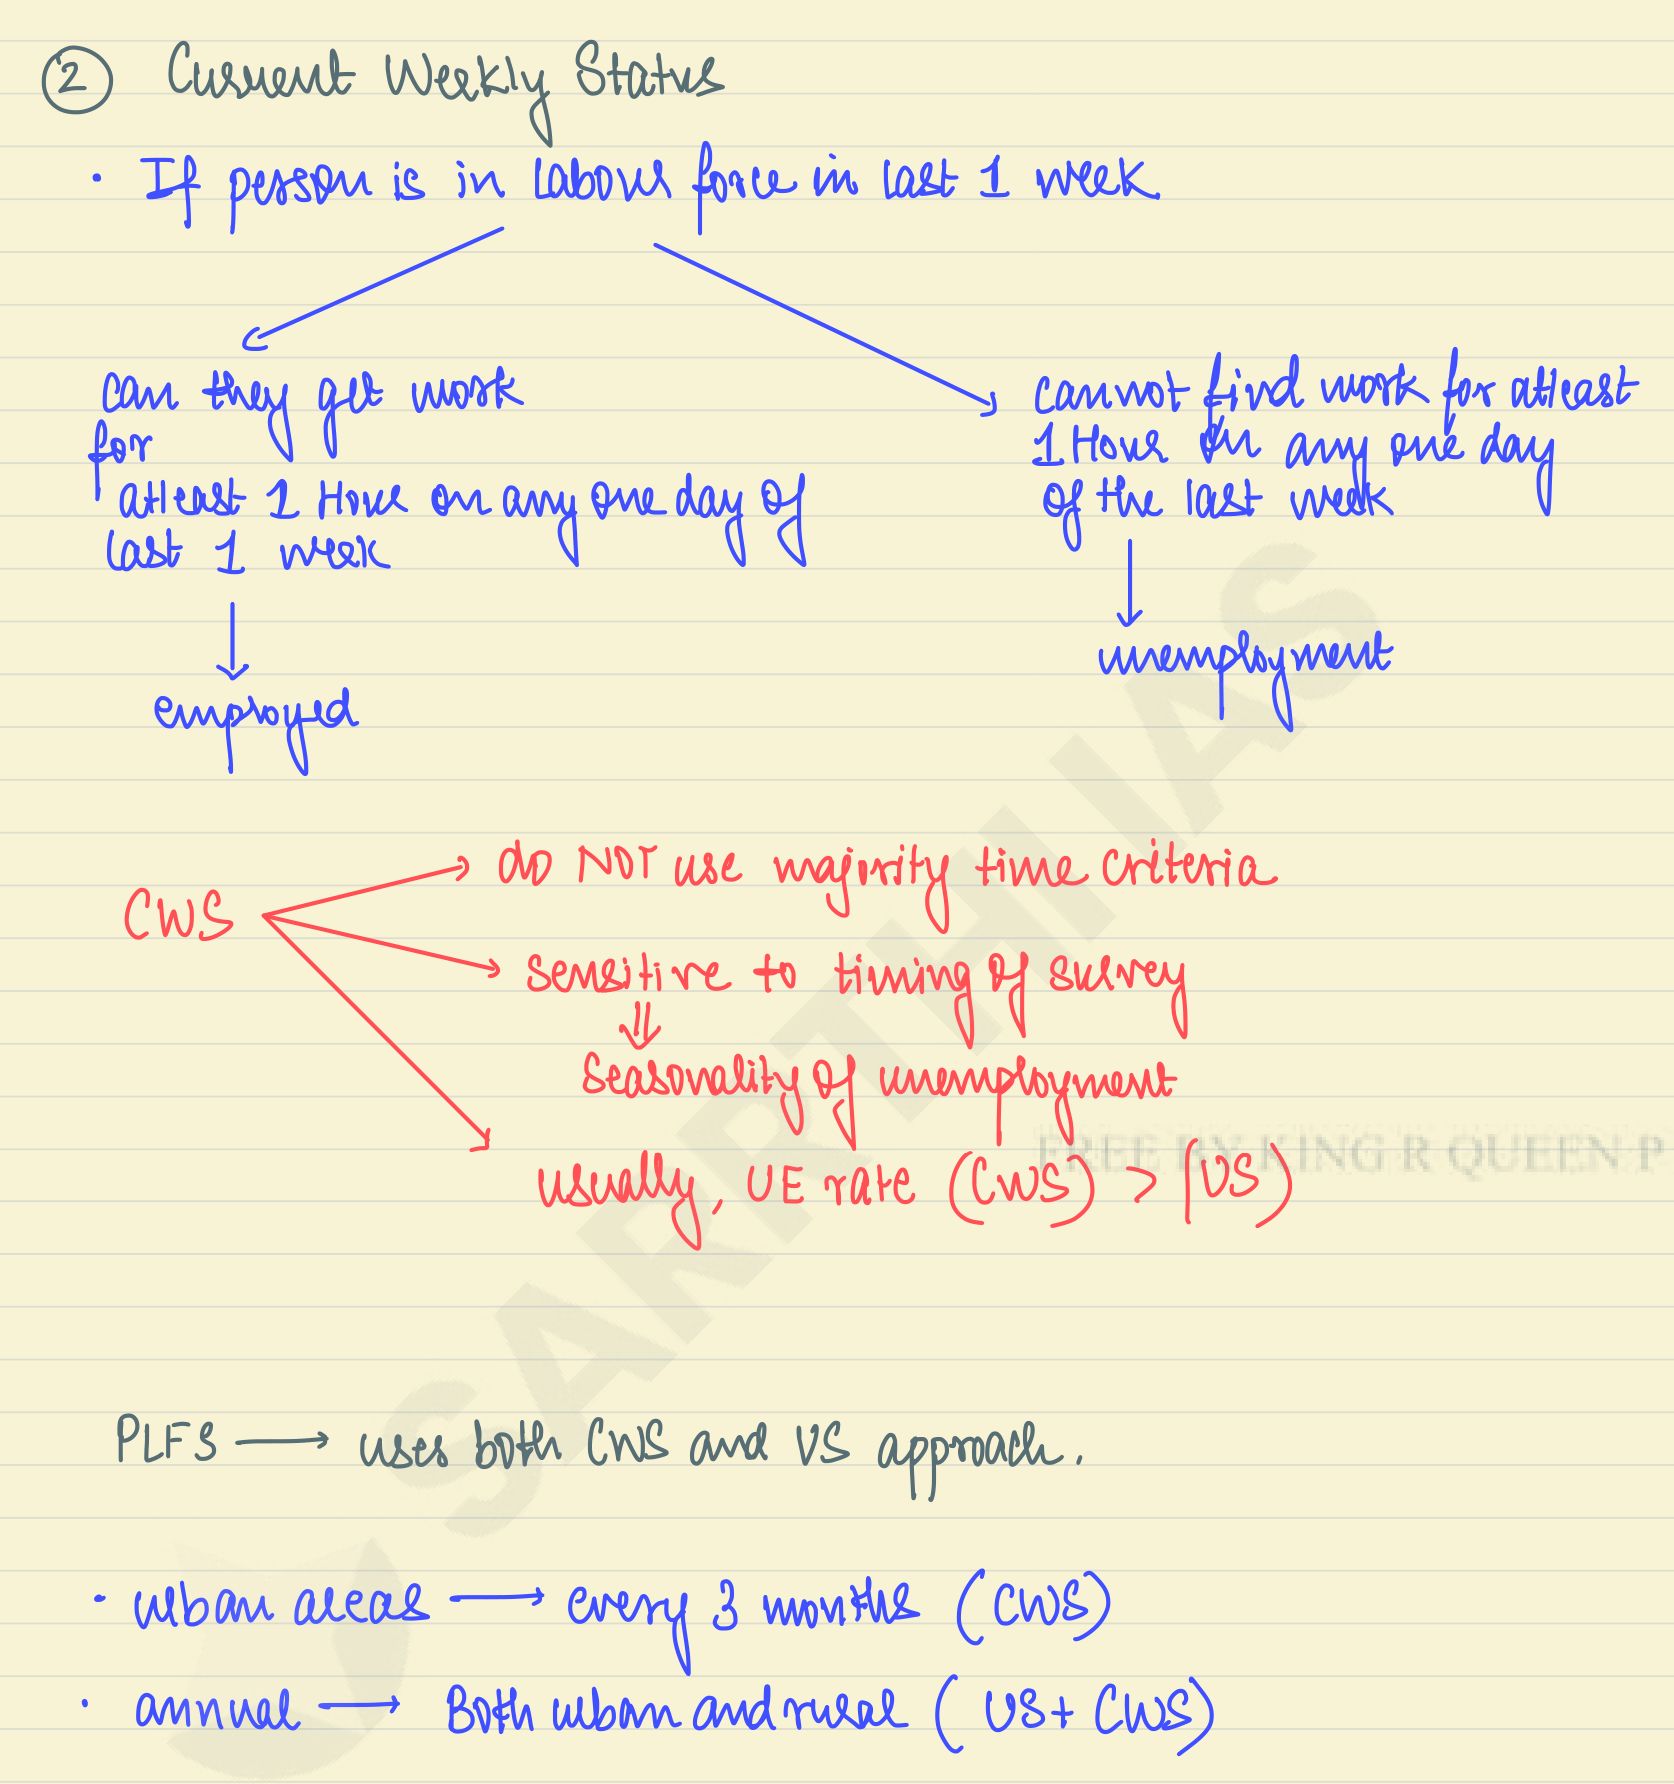 2 Current Weekly Status
· If person is in labour force in last 1 week
can they get work
for
atleast 1 Hour on any one day of
last 1 week
employed
cannot find work for atleast
1 Hour on any one day
of the last week
unemployment
CWS
do NOT use majority time criteria
sensitive to timing of survey
seasonality of unemployment
usually, UE rate (CWS) > (US)
FREE BY KING R QUEEN P
PLFS → uses both CWS and US approach.
· urban areas → every 3 months (CWS)
· annual → Both urban and rural (US + CWS)
SARRTHI IAS